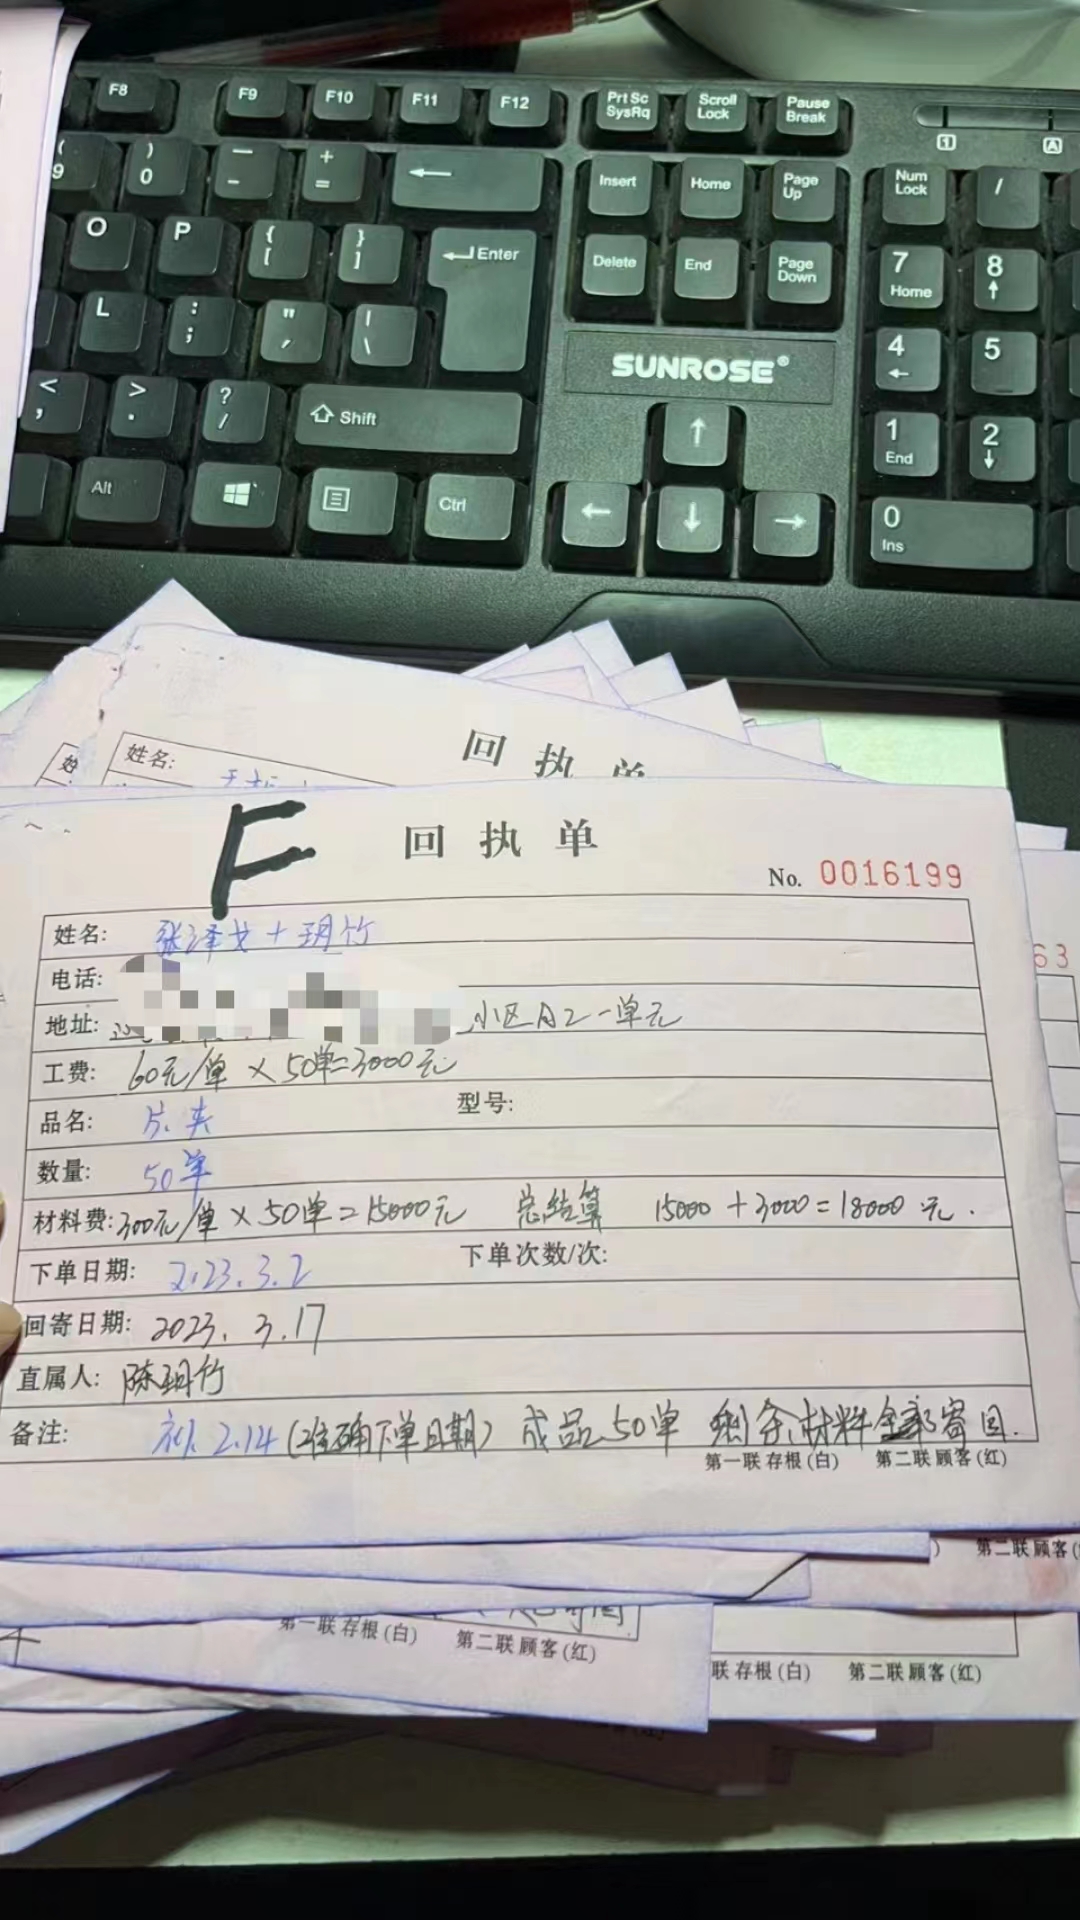 F8 F9 F10 F11 F12 Prt Sc SysRq Scroll Lock Pause Break
( 9 ) 0 — - + = Insert Home Page Up Num Lock /
1 A
O P { [ } ] Enter Delete End Page Down 7 Home 8
L : ; " ' | \ SUNROSE® 4 5
< , > . ? / Shift 1 End 2
Alt Ctrl 0 Ins
姓名:
回执单
姓
F
回执单
No. 0016199
姓名: 张泽戈+玥竹
63
电话:
地址: 小区A2一单元
工费: 60元/单×50单=3000元
品名: 片夹 型号:
数量: 50单
材料费:300元/单×50单=15000元 总结算 15000+3000=18000元.
下单日期: 2023.3.2 下单次数/次:
回寄日期: 2023.3.17
直属人: 陈玥竹
备注: 补 2.14(准确下单日期) 成品50单 剩余材料全部寄回.
第一联 存根(白) 第二联 顾客(红)
第二联 顾客(
第一联 存根(白) 第二联 顾客(红)
联 存根(白) 第二联 顾客(红)